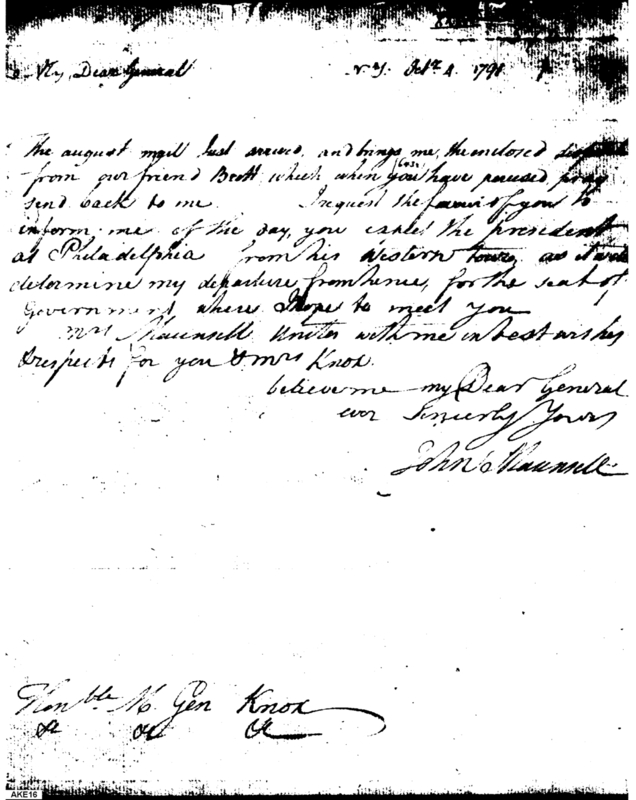 My Dear General N.Y. Octr. 4. 1791
The august mail Just arrived, and brings me, the enclosed
from our friend Brett which when you have perused pray
send back to me. I request the favor of you to
inform me of the day, you expect the president
at Philadelphia from his western tour, as it will
determine my departure from hence, for the seat of
Government, where I hope to meet you
Mrs Maunsell Unites with me in best wishes
& respects for you & Mrs Knox.
believe me my Dear General
ever Sincerly Yours
John Maunsell
Honble M. Gen Knox
&c &c &c
AKE16